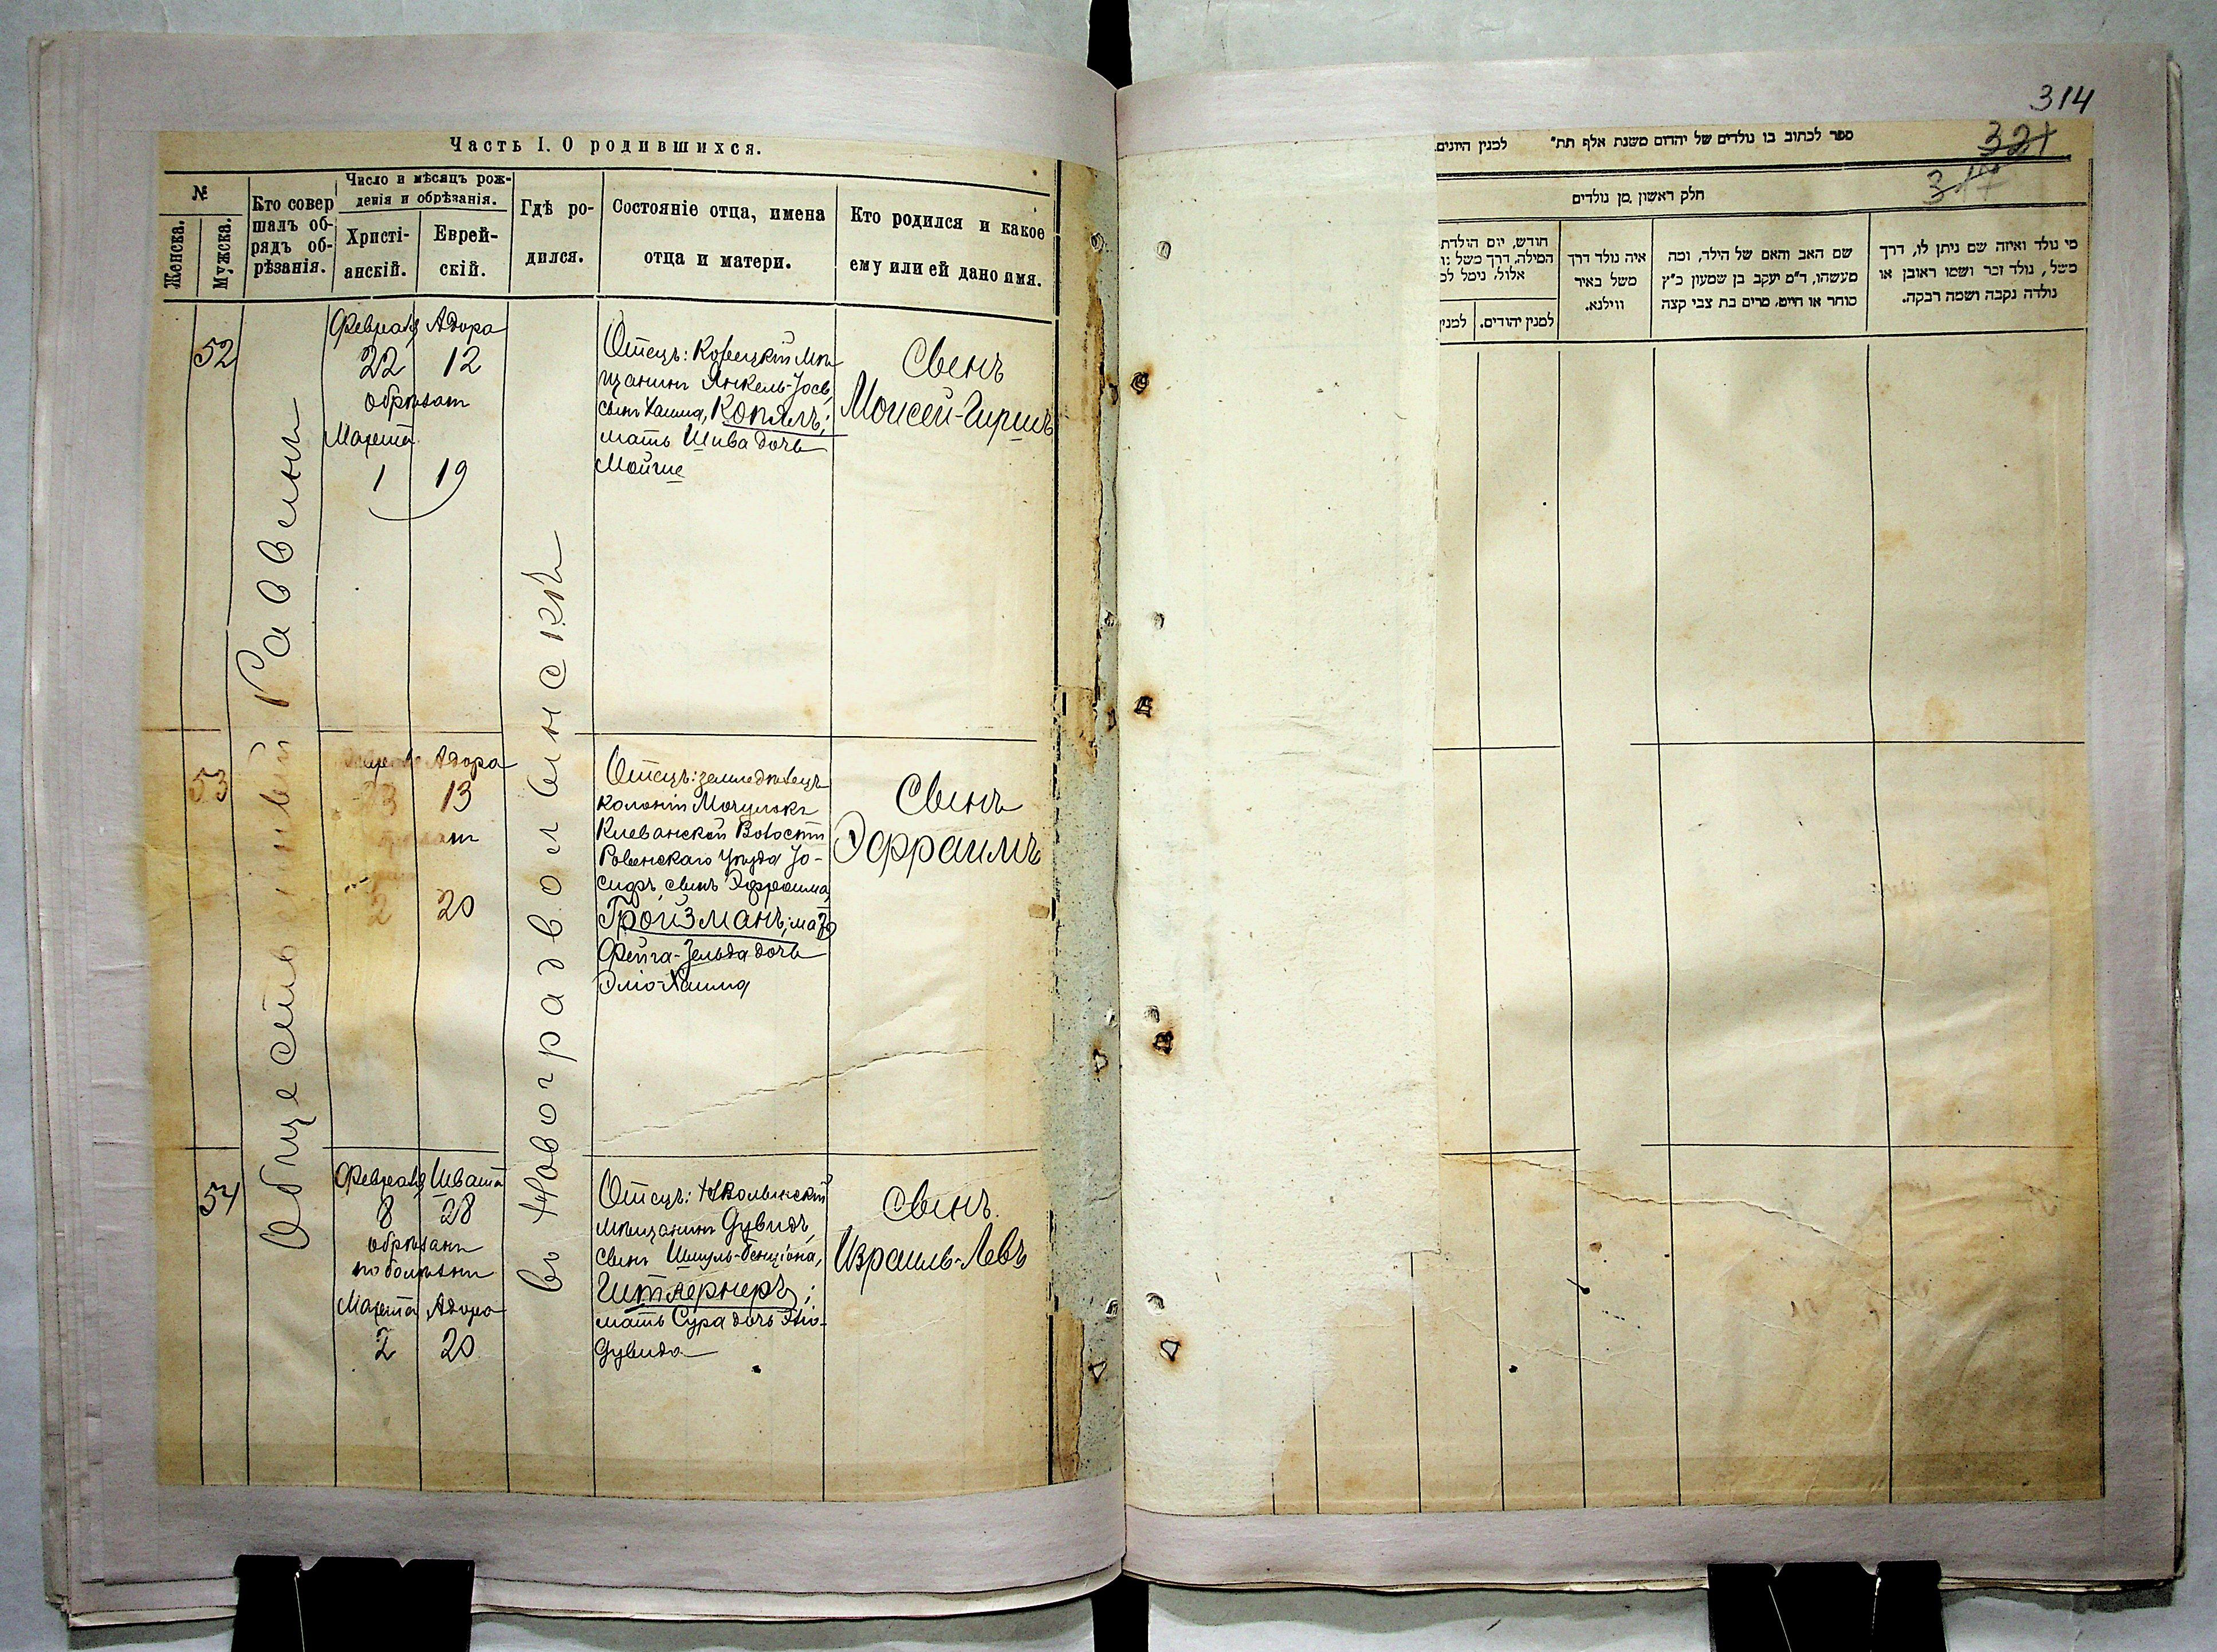 Часть I. О родившихся.
№
Женска.
Мужска.
Кто совер
шалъ об-
рядъ об-
рѣзанія.
Число и мѣсяцъ рож-
денія и обрѣзанія.
Христі-
анскій.
Еврей-
скій.
Гдѣ ро-
дился.
Состояніе отца, имена
отца и матери.
Кто родился и какое
ему или ей дано имя.
Общественный Раввинъ
въ Новоградволынскѣ
52
Февраля Адора
22 12
обрѣзанъ
Марта
1 19
Отецъ: Корецкій мѣ-
щанинъ Янкель-Іосъ,
сынъ Хаима, Копялъ;
мать Шива дочь
Мойше
Сынъ
Моисей-Гиршъ
53
Адора
23 13
2 20
Отецъ: земледѣлецъ
колоніи Мочулокъ
Клеванской Волости
Ровенскаго Уѣзда Іо-
сифъ, сынъ Эфраима,
Гройзманъ, мать
Фейга-Зельда дочь
Эліо-Хаима
Сынъ
Эфраимъ
54
Февраля Швата
8 28
обрѣзанъ
по болѣзни
Марта Адора
2 20
Отецъ: НВолынскій
мѣщанинъ Дувидъ,
сынъ Шмуль-Бенціона,
Штернеръ;
мать Сура дочь Эліо-
Дувида
Сынъ
Израиль-Лейбъ
314
321
317
ספר לכתוב בו נולדים של יהדום משנת אלף תת״ למנין היונים
חלק ראשון מן נולדים
מי נולד ואיזה שם ניתן לו, דרך
משל, נולד זכר ושמו ראובן או
נולדה נקבה ושמה רבקה.
שם האב והאם של הילד, ומה
מעשהו, ד״מ יעקב בן שמעון כ״ץ
סוחר או חייט, מרים בת צבי קצה
איה נולד דרך
משל באיר
ווילנא.
חודש, יום הולדת
המילה, דרך משל
אלול, ניסל
למנין יהודים.